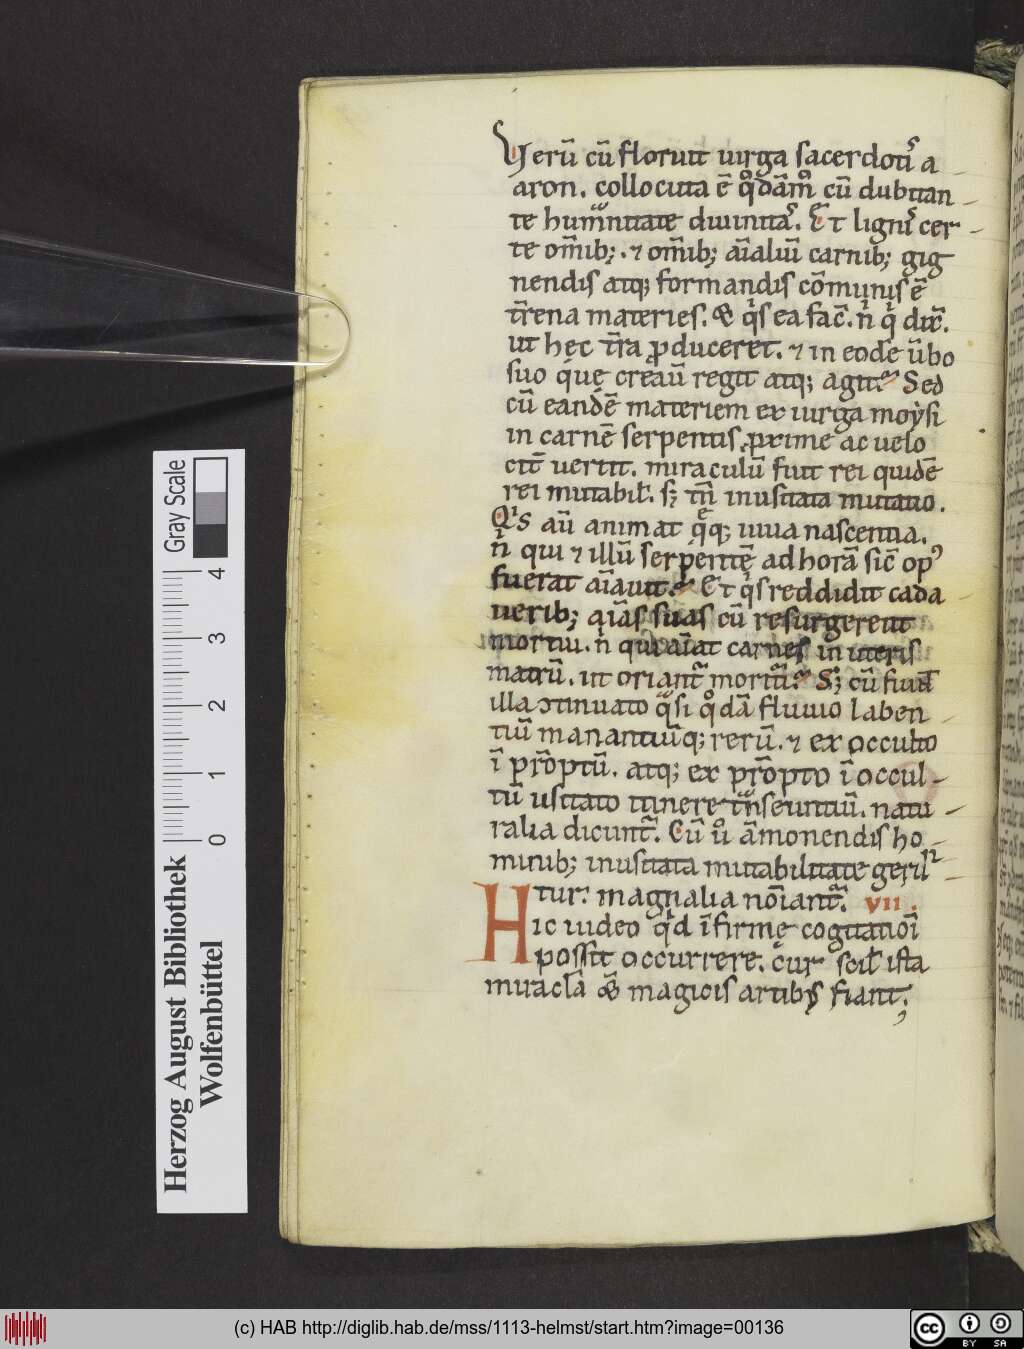 Uerū cū floruit uirga sacerdoti᷒ a
aron. collocuta ē qͦdāmͦ cū dubitan
te humͣnitate diuinita᷒. Et ligni᷒ cer
te om̄ib; ⁊ om̄ib; aīaliū carnib; gig
nendis atq; formandis cōmunis ē
tr̄rena materies. & qͥs ea fac̄. n̄ qͥ dix̄.
ut hec tr̄ra ꝓduceret. ⁊ in eodē ūbo
suo qͥ nūc creāu regit atq; agit. Sed
cū eandē materiem ex uirga moysi
in carnē serpentis ꝓxime ac uelo
cit̄ uertit. miraculū fuit rei quidē
rei mutabil̄. s; tn̄ inusitata mutatio.
Qͥs aū animat qͥq; uiua nascentia.
n̄ qui ⁊ illū serpentē ad horā sic̄ opꝰ
fuerat aīauit. Et qͥs reddidit cada
uerib; aīas suas cū resurgerent
mortui. n̄ qui aīat carnes in uteris
matrū. ut oriantͬ moritͥ. S; cū fiunt
illa ↄtinuato qͣsi qͦdā fluuio laben
tiū manantiūq; rerū. ⁊ ex occulto
ī prōptū. atq; ex prōpto ī occul
tū usitato itinere tn̄seuntiū. natu
ralia dicuntͬ. Cū ū āmonendis ho
minib; inusitata mutabilitate geru
ntur. magnalia noīantͬ. VII.
Hic uideo qͥd īfirme cogitatioī
possit occurrere. cur scil̄ ista
miracla & magicis artibꝫ fiant;
Herzog August Bibliothek
Wolfenbüttel
Gray Scale
0 1 2 3 4
(c) HAB http://diglib.hab.de/mss/1113-helmst/start.htm?image=00136
cc BY SA